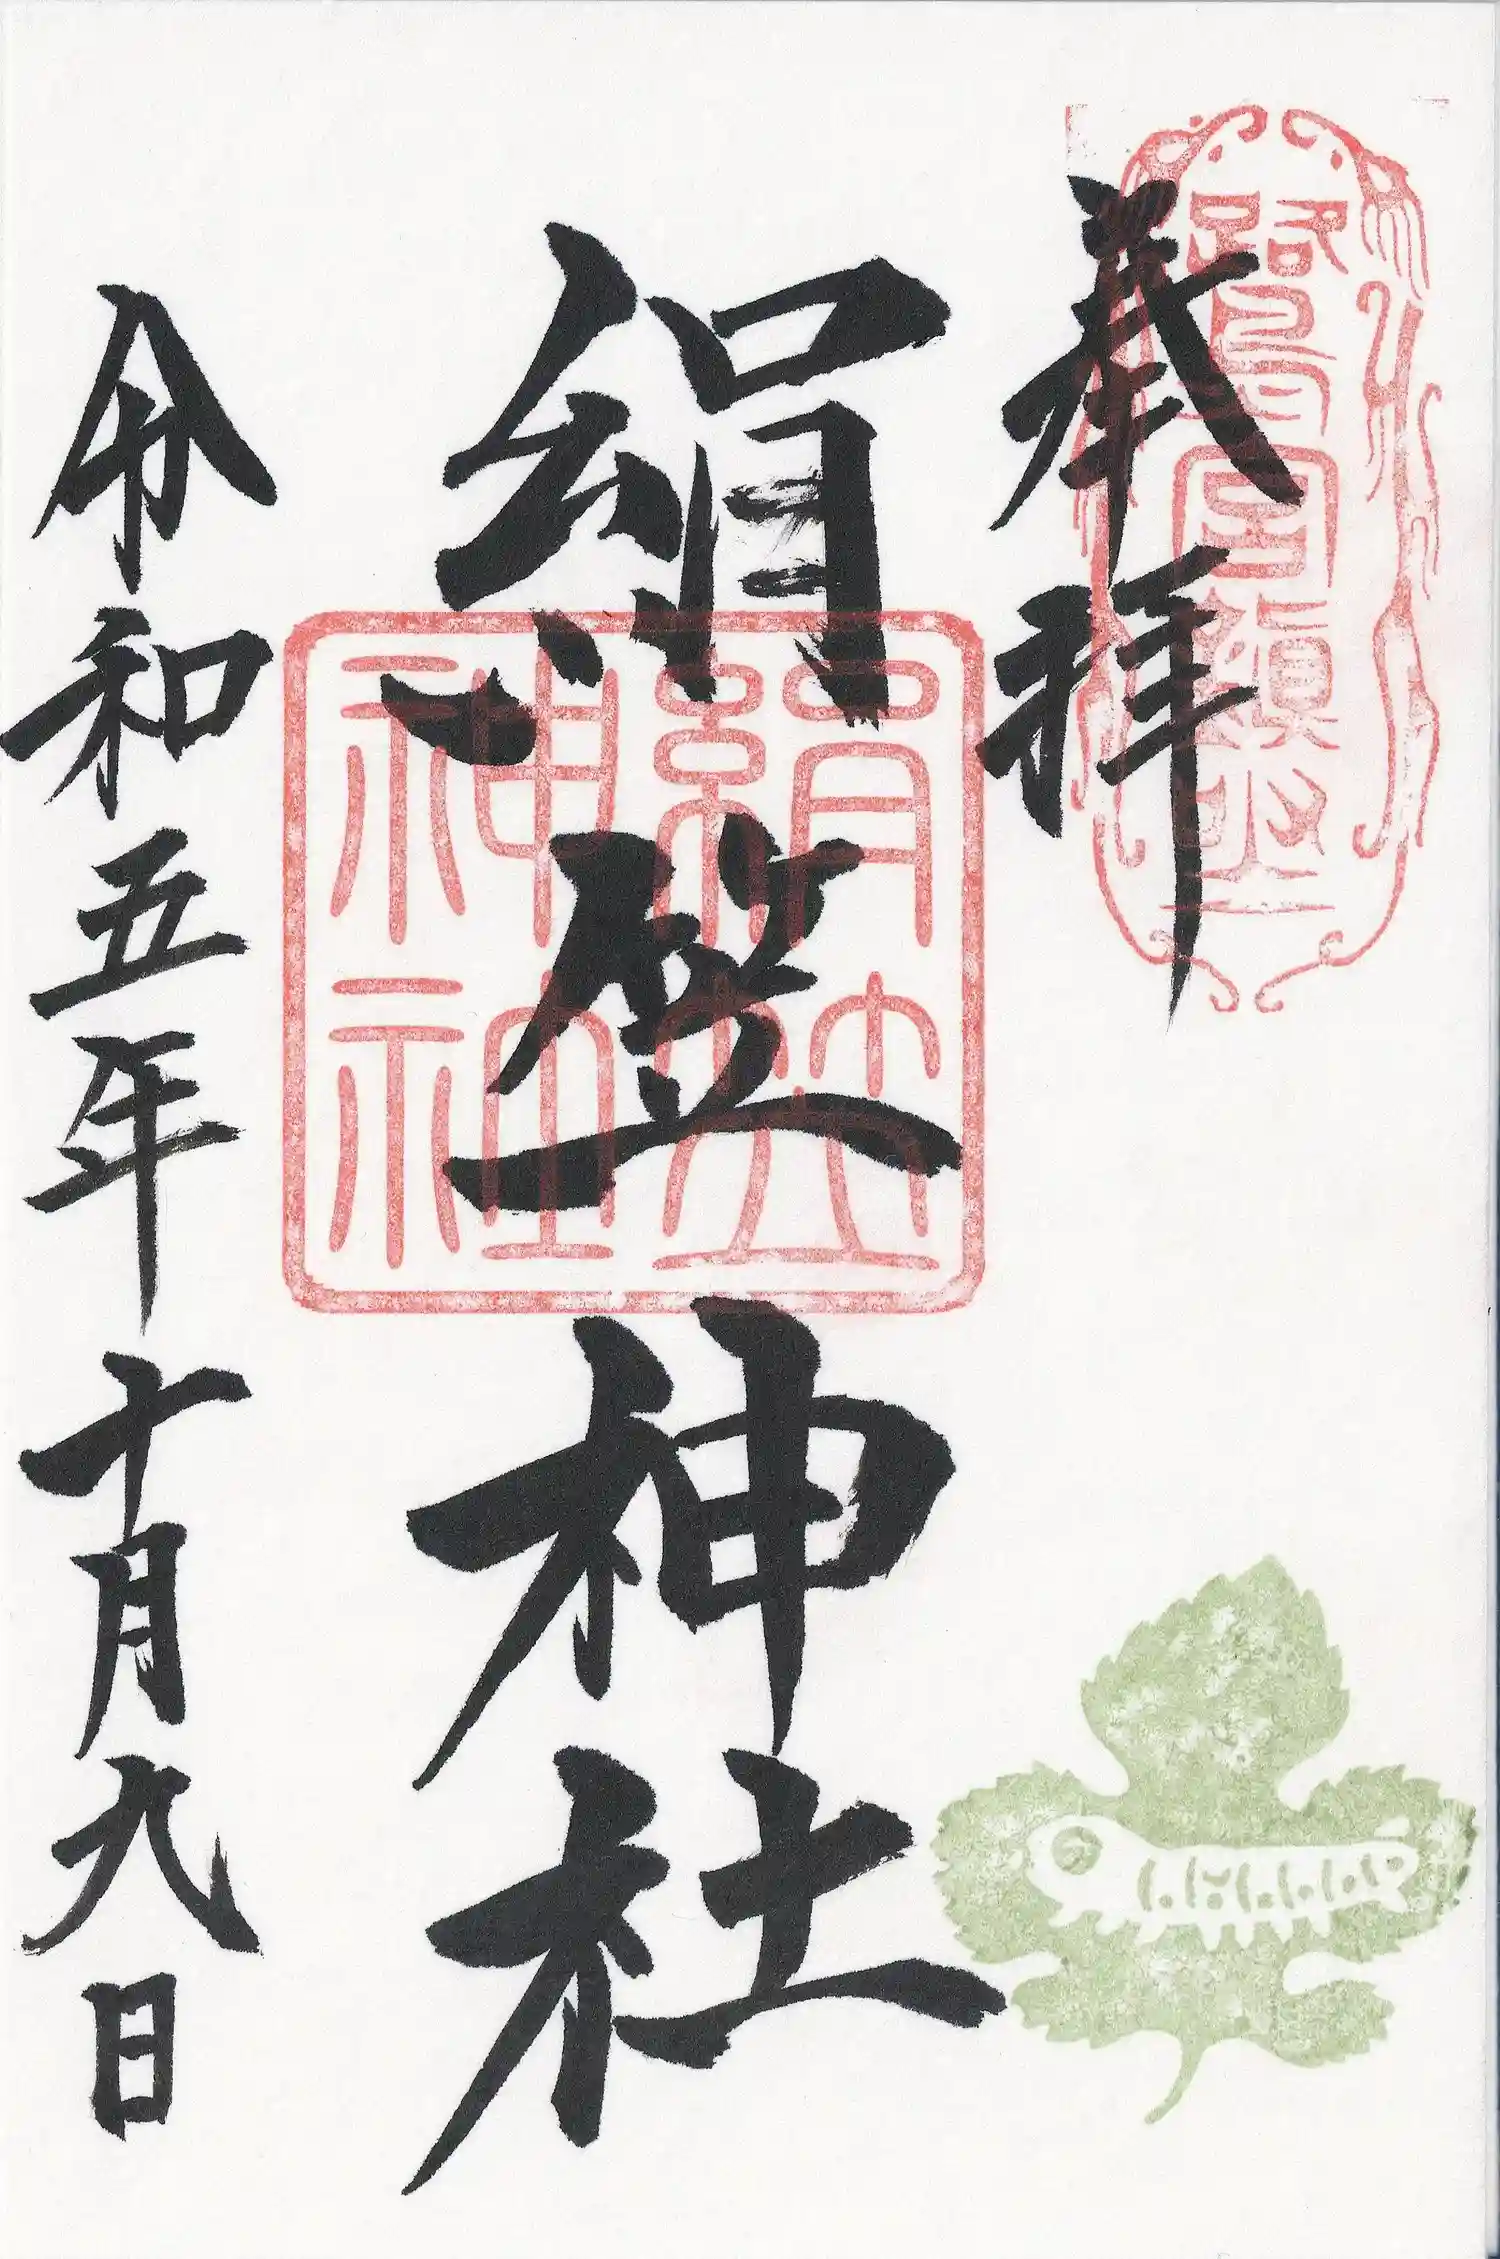 奉拝
絹笠神社
令和五年十月九日
絹笠
神社